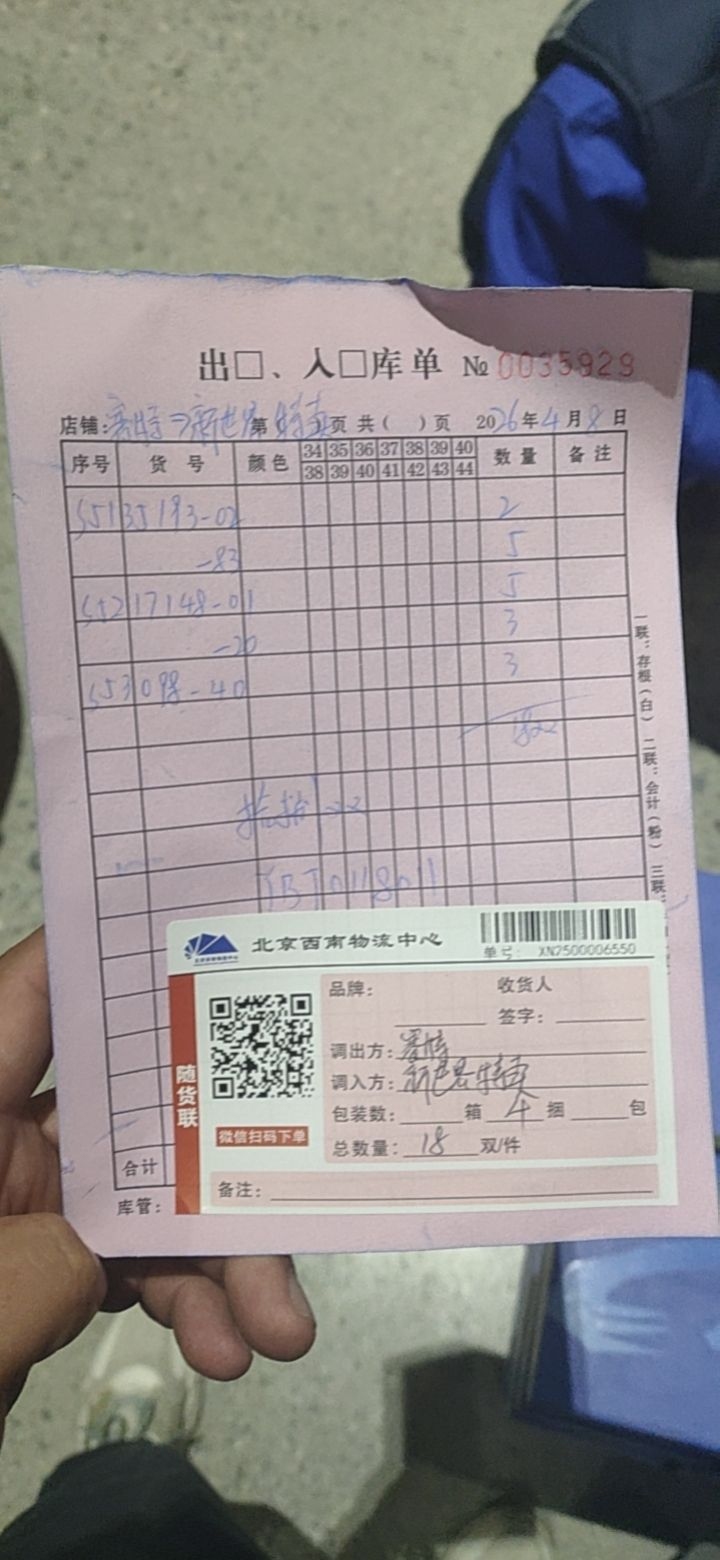 出□、入□库单 № 0035929
店铺: 赛特→新世界特卖 第 页 共( )页 2026年4月8日
序号 货号 颜色 34 35 36 37 38 39 40 数量 备注
38 39 40 41 42 43 44
S5135193-02 2
-83 5
S5217148-01 5
-20 3
-40 3
18双
合计
库管:
一联:存根(白) 二联:会计(粉) 三联:
北京西南物流中心
单号: XN2500006550
随货联
微信扫码下单
品牌: 收货人
签字:
调出方: 赛特
调入方: 新世界特卖
包装数: 箱 4 捆 包
总数量: 18 双/件
备注: